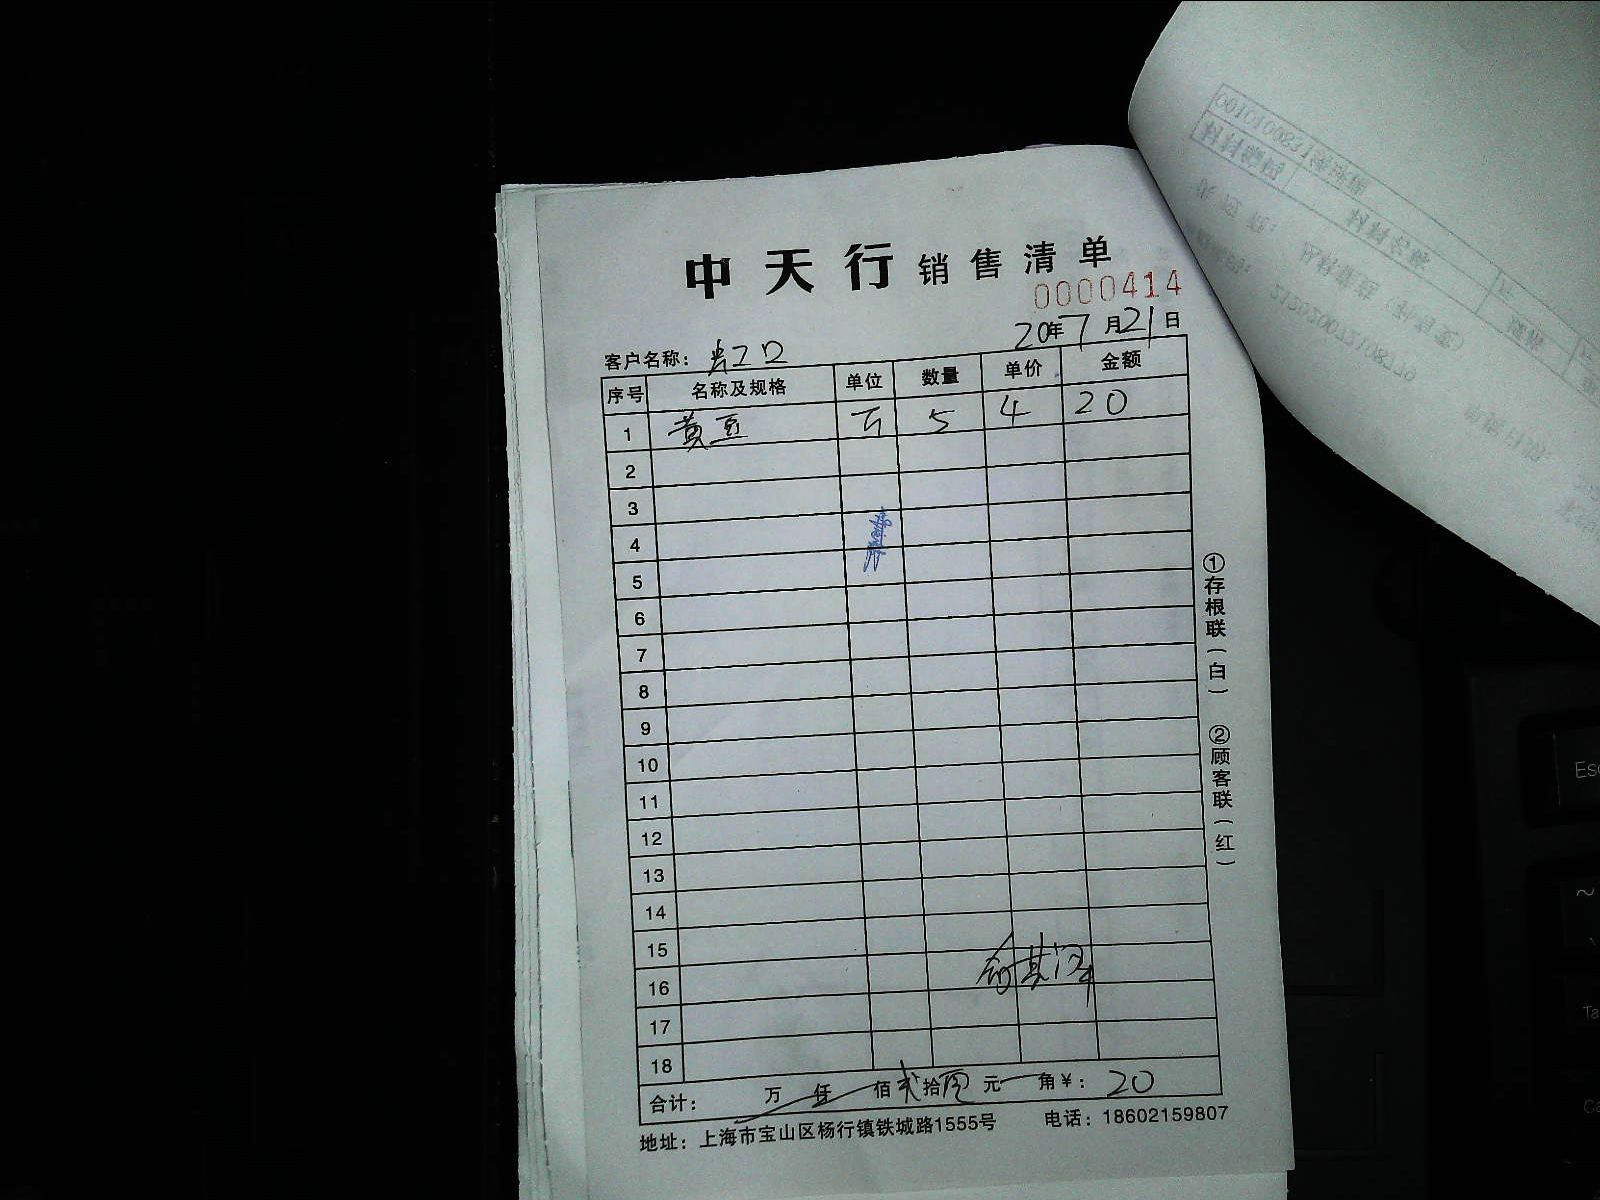 中天行销售清单
0000414
20年7月21日
客户名称：
序号 名称及规格 单位 数量 单价 金额
1 黄豆 斤 5 4 20
2
3
4
5
6
7
8
9
10
11
12
13
14
15
16
17
18
合计： 万 仟 佰 贰拾 元 角￥：20
地址：上海市宝山区杨行镇铁城路1555号 电话：18602159807
①存根联（白） ②顾客联（红）
Esc
~